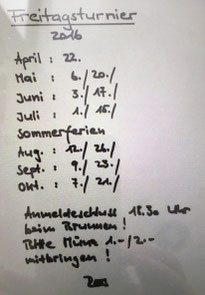 Freitagsturnier
2016
April : 22.
Mai : 6./20./
Juni : 3./17./
Juli : 1./15./
Sommerferien
Aug. : 12./26./
Sept. : 9./23./
Okt. : 7./21./
Anmeldeschluss 18.30 Uhr
beim Brunnen!
Bitte Münz 1.-/2.-
mitbringen!